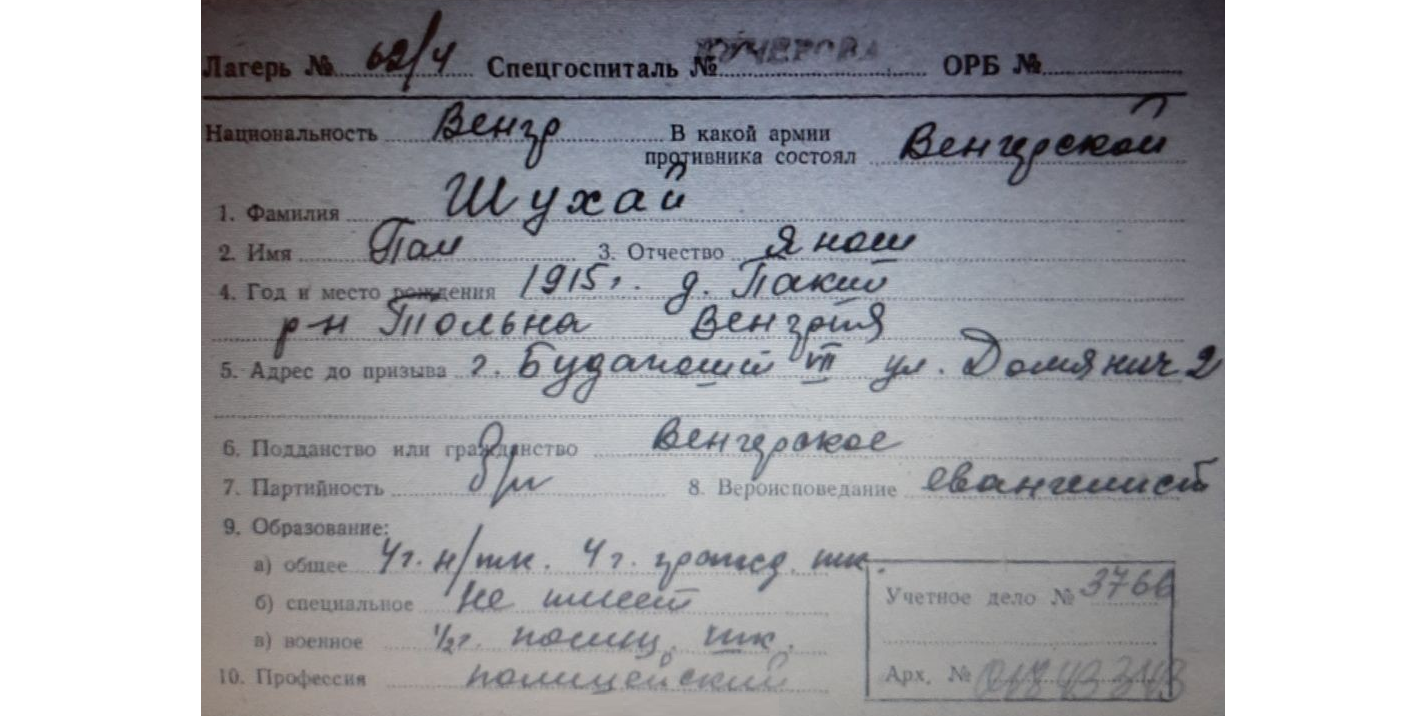 Лагерь № 62/4 Спецгоспиталь № КУЧЕРОВА ОРБ №
Национальность Венгр В какой армии
противника состоял Венгерской
1. Фамилия Шухай
2. Имя Пал 3. Отчество Янош
4. Год и место рождения 1915 г. д. Пакш
р-н Тольна Венгрия
5. Адрес до призыва г. Будапешт VII ул. Домянич 2
6. Подданство или гражданство Венгерское
7. Партийность б/п 8. Вероисповедание евангелист
9. Образование:
а) общее 4 г. н/шк. 4 г. гражд. шк.
б) специальное не имеет
в) военное 1/2 г. полиц. шк.
10. Профессия полицейский
Учетное дело № 3766
Арх. №